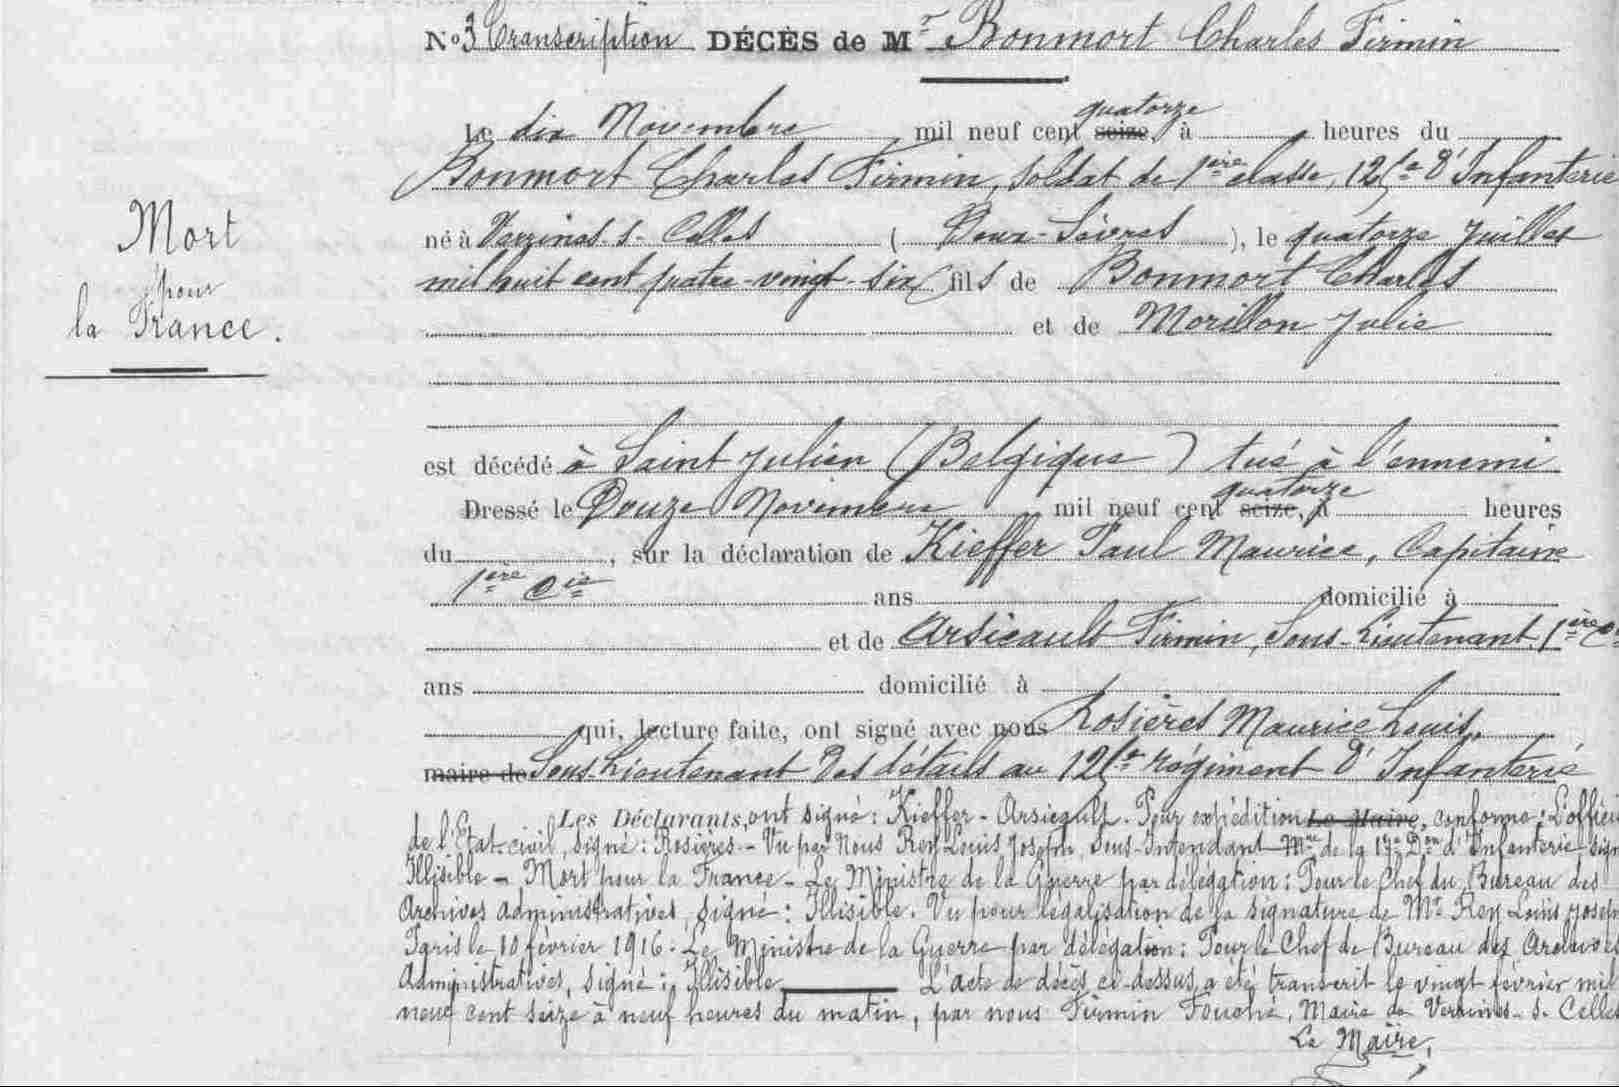 N° 3 Transcription DÉCÈS de Mr Bonmort Charles Firmin
Le dix Novembre mil neuf cent seize quatorze, à heures du
Bonmort Charles Firmin, soldat de 1ère classe, 125e d'Infanterie
né à Verrines-s-Celles (Deux-Sèvres), le quatorze Juillet
mil huit cent quatre-vingt-six fils de Bonmort Charles
et de Morillon Julie
Mort
pour
la France.
est décédé à Saint Julien (Belgique) tué à l'ennemi
Dressé le Douze Novembre mil neuf cent seize quatorze, à heures
du , sur la déclaration de Kieffer Paul Maurice, Capitaine
1ère Cie ans domicilié à
et de Arsicault Firmin, Sous-Lieutenant, 1ère
ans domicilié à
qui, lecture faite, ont signé avec nous Rosières Maurice Louis,
maire de Sous-Lieutenant des détails au 125e régiment d'Infanterie
Les Déclarants, ont signé : Kieffer - Arsicault. Pour expédition Le Maire, conforme : L'officier
de l'Etat-civil, signé : Rosières - Vu par Nous Rey Louis Joseph, Sous-Intendant Mre de la 17e Don d'Infanterie sign
Illisible - Mort pour la France - Le Ministre de la Guerre par délégation : Pour le Chef du Bureau des
Archives administratives, signé : Illisible. Vu pour légalisation de la signature de Mr Rey Louis Joseph
Paris le 10 février 1916 : Le Ministre de la Guerre par délégation : Pour le Chef de Bureau des Archives
Administratives, signé : Illisible L'acte de décès ci-dessus a été transcrit le vingt février mil
neuf cent seize à neuf heures du matin, par nous Firmin Fouché, Maire de Verrines-s-Celles
Le Maire,